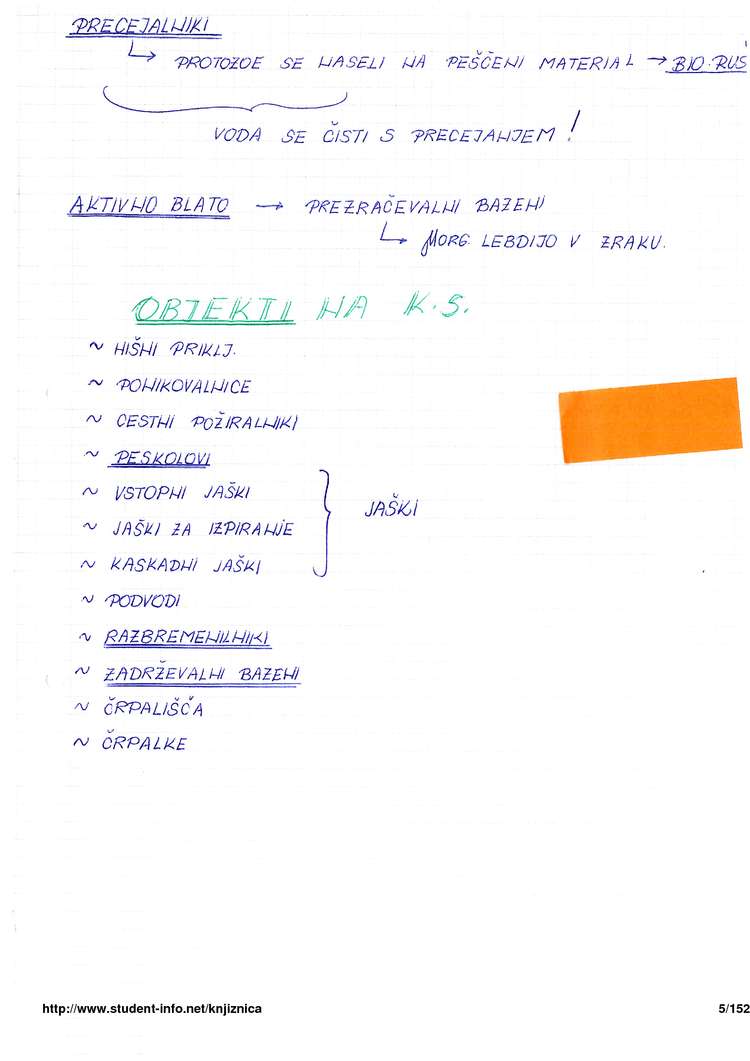 PRECEJALNIKI
↳ PROTOZOE SE NASELI NA PEŠČENI MATERIAL → BIO. RUŠ
VODA SE ČISTI S PRECEJANJEM!
AKTIVNO BLATO → PREZRAČEVALNI BAZENI
↳ MORG. LEBDIJO V ZRAKU.
OBJEKTI NA K.S.
~ HIŠNI PRIKLJ.
~ PONIKOVALNICE
~ CESTNI POŽIRALNIKI
~ PESKOLOVI
~ VSTOPNI JAŠKI
~ JAŠKI ZA IZPIRANJE
JAŠKI
~ KASKADNI JAŠKI
~ PODVODI
~ RAZBREMENILNIKI
~ ZADRŽEVALNI BAZENI
~ ČRPALIŠČA
~ ČRPALKE
http://www.student-info.net/knjiznica 5/152